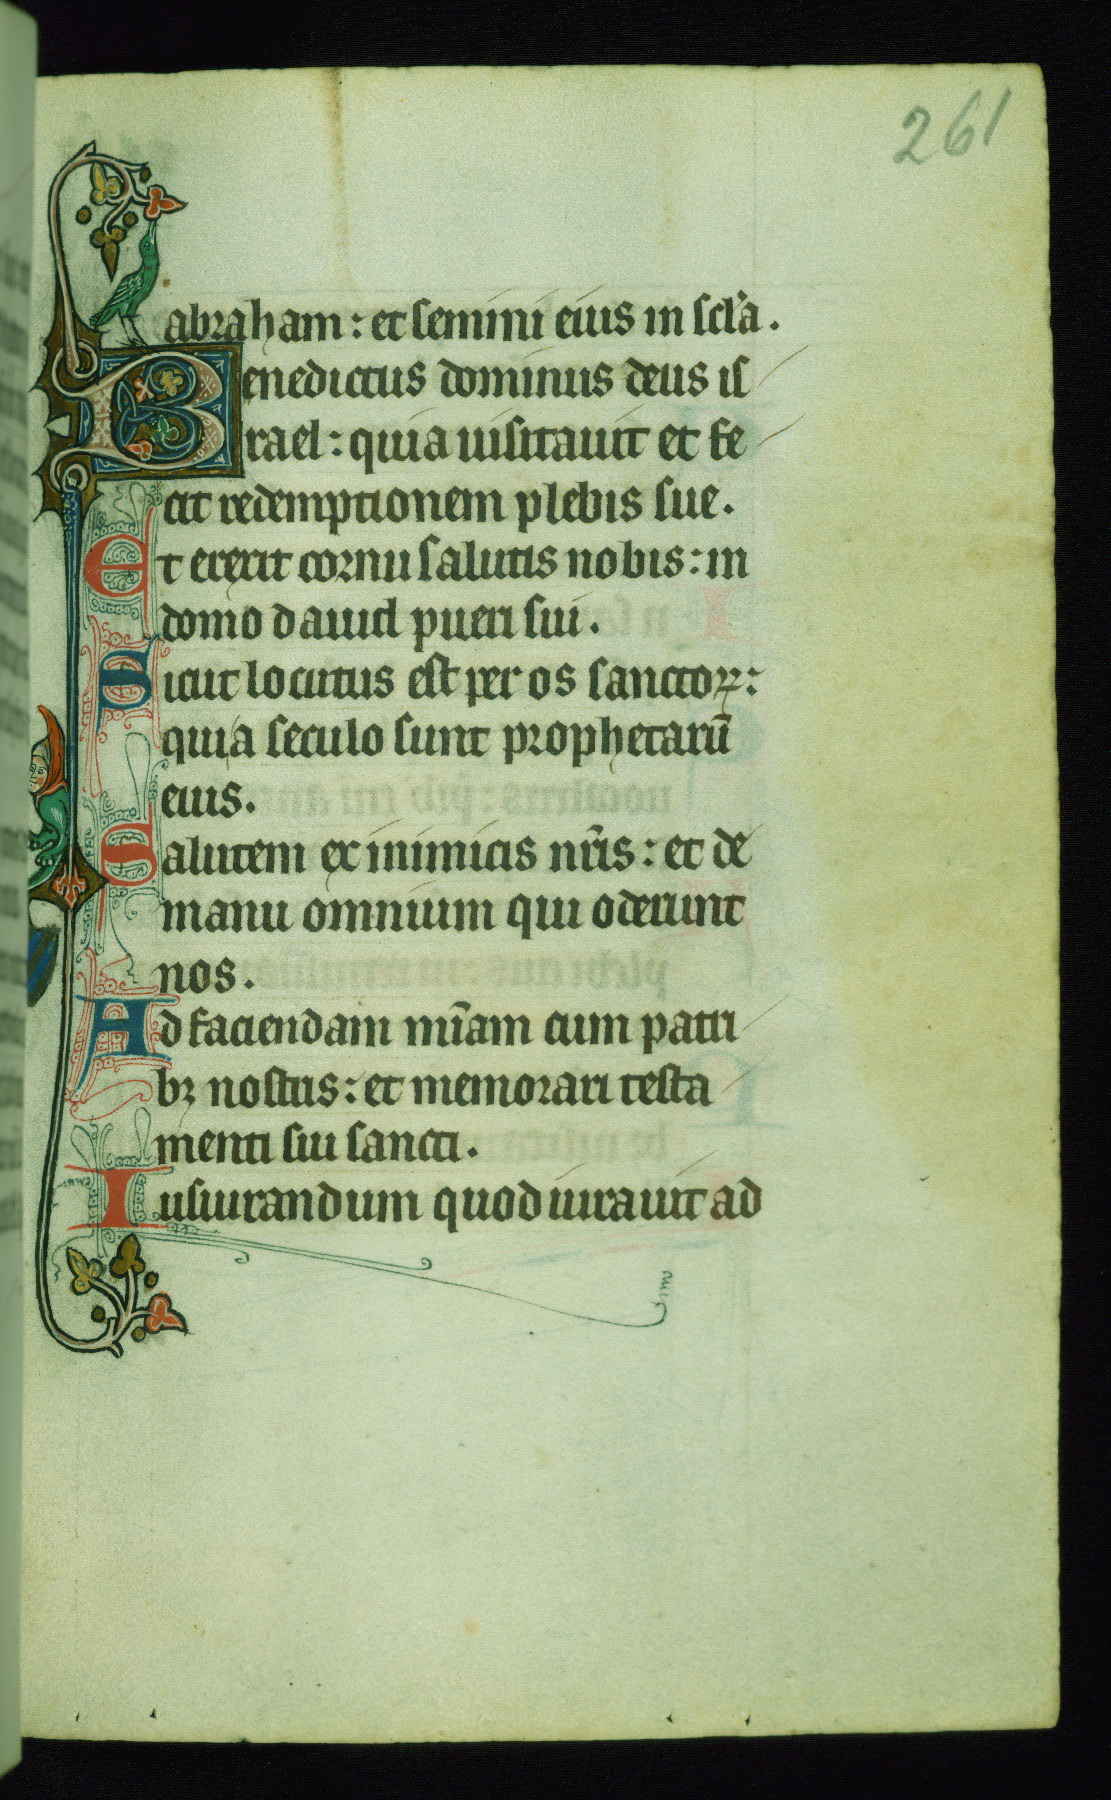 261
abraham : et semini eius in scl'a .
Benedictus dominus deus is
rael : quia uisitauit et fe
cit redemptionem plebis sue .
Et erexit cornu salutis nobis : in
domo dauid pueri sui .
Sicut locutus est per os sanctoꝝ :
qui a seculo sunt prophetarū
eius .
Salutem ex inimicis nr̄is : et de
manu omnium qui oderunt
nos .
Ad faciendam mīam cum patri
bꝫ nostris : et memorari testa
menti sui sancti .
Iusiurandum quod iurauit ad